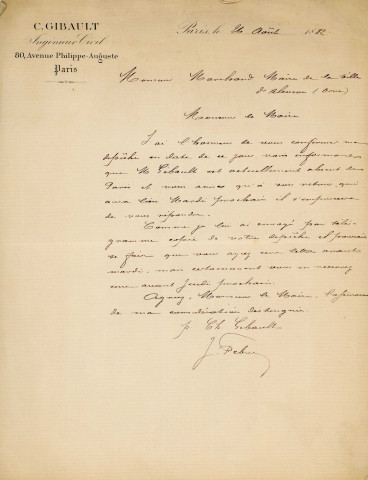 C. GIBAULT
Ingénieur Civil
80, Avenue Philippe-Auguste
Paris
Paris le 26 Août 1882
Monsieur Marchand Maire de la Ville
d'Alencon (Orne)
Monsieur le Maire
J'ai l'honneur de vous confirmer ma
dépêche en date de ce jour vous informant
que Mr Gibault est actuellement absent de
Paris et vous avise qu'à son retour qui
aura lieu Mardi prochain il s'empressera
de vous répondre.
Comme je lui ai envoyé par télé-
gramme copie de votre dépêche il pourrait
se faire que vous ayez une lettre avant
mardi, mais certainement vous en recevrez
une avant Jeudi prochain.
Agréez, Monsieur le Maire, l'assurance
de ma considération distinguée
p. Ch. Gibault